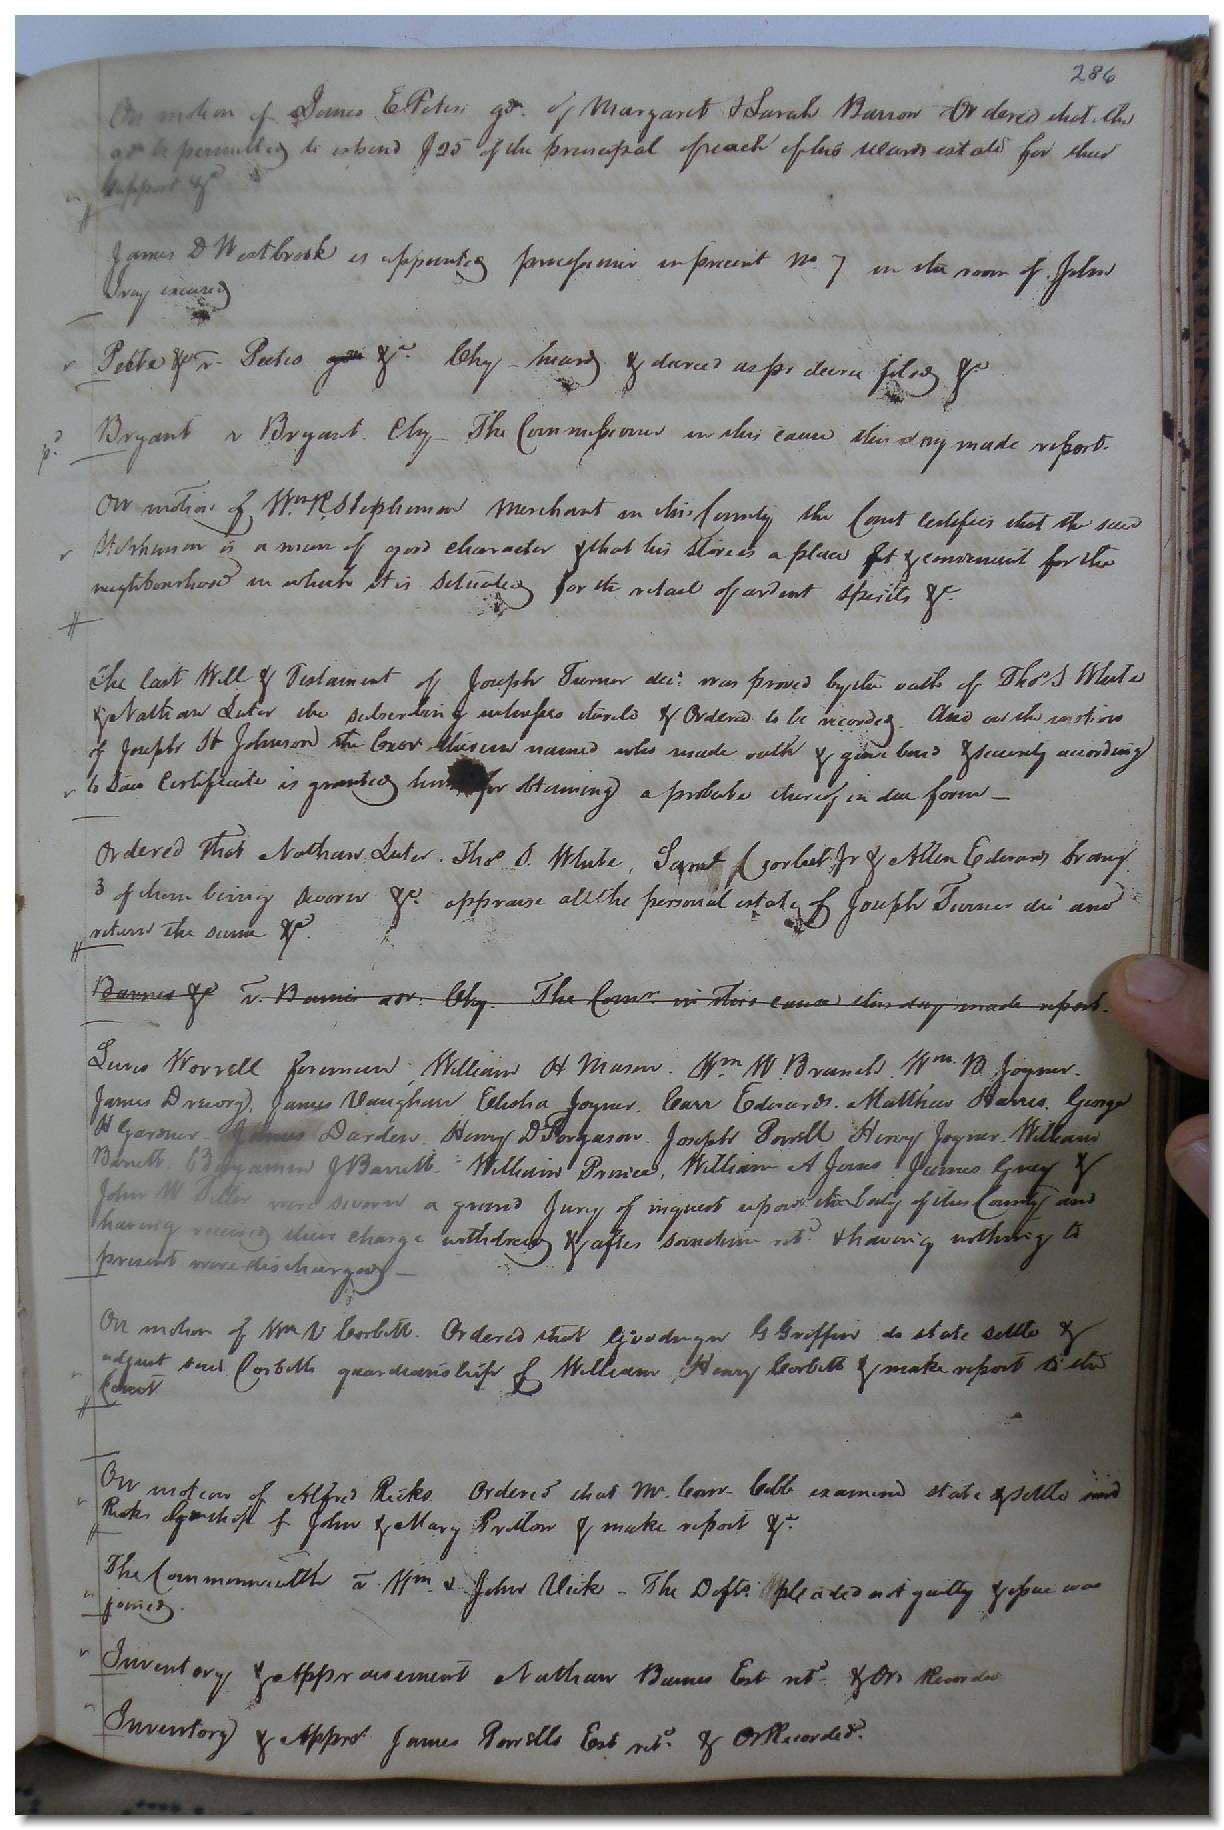 286
On motion of James E Peters gdn. of Margaret & Sarah Barrow Ordered that the
gdn be permitted to expend $25 of the principal of each of his wards estate for their
support &c
James D Westbrook is appointed processioner in precinct No 7 in the room of John
Ivey excused
v. Peetes &c. Chy heard & decreed as pr decree filed &c
pd
Bryant v Bryant. Chy The Commissioner in this cause this day made report.
On motion of Wm R Stephenson Merchant in this County the Court Certifies that the said
Stephenson is a man of good character & that his store is a place fit & convenient for the
neighbourhood in which it is situated for the retail of ardent spirits &c.
The last Will & Testament of Joseph Turner decd. was proved by the oath of Thos S White
& Nathan Luter the subscribing witnesses thereto & Ordered to be recorded. And on the motion
of Joseph H Johnson the Exor therein named who made oath & gave bond & security according
to law Certificate is granted him for obtaining a probate thereof in due form
Ordered that Nathan Luter. Thos S. White, Saml Corbet Jr & Allen Edwards or any
3 of them being sworn &c. appraise all the personal estate of Joseph Turner decd and
return the same &c.
Barnes &c v. Barnes adr. Chy. The Comr. in this cause this day made report.
Lewis Worrell foreman, William H Mason. Wm W. Branch. Wm B. Joyner.
James Drewry, James Vaughan Elisha Joyner. Carr Edwards. Matthew Harris. George
H Gardner. James Darden. Henry D Ferguson. Joseph Powell Henry Joyner. William
Barrett. Benjamin J Barrett. William Prince, William A Jones James Gray &
John W were sworn a grand Jury of inquest upon the body of this County and
having received their charge withdrew & after sometime retd. & having nothing to
present were discharged
On motion of Wm Corbett. Ordered that Goodwyn G Griffin do state settle &
adjust said Corbetts guardianship of William Henry Corbett & make report to the
Court
On motion of Alfred Ricks Ordered that Mr. Comr. Cobb examine state & settle said
Ricks gdnship of John & Mary Pretlow & make report &c.
The Commonwealth v Wm. & John Vick The Defts. pleaded not guilty & issue was
joined.
Inventory & Appraisement Nathan Barnes Est retd. & Ord Recorded
Inventory & Appmt James Powells Est retd. & Or Recorded.